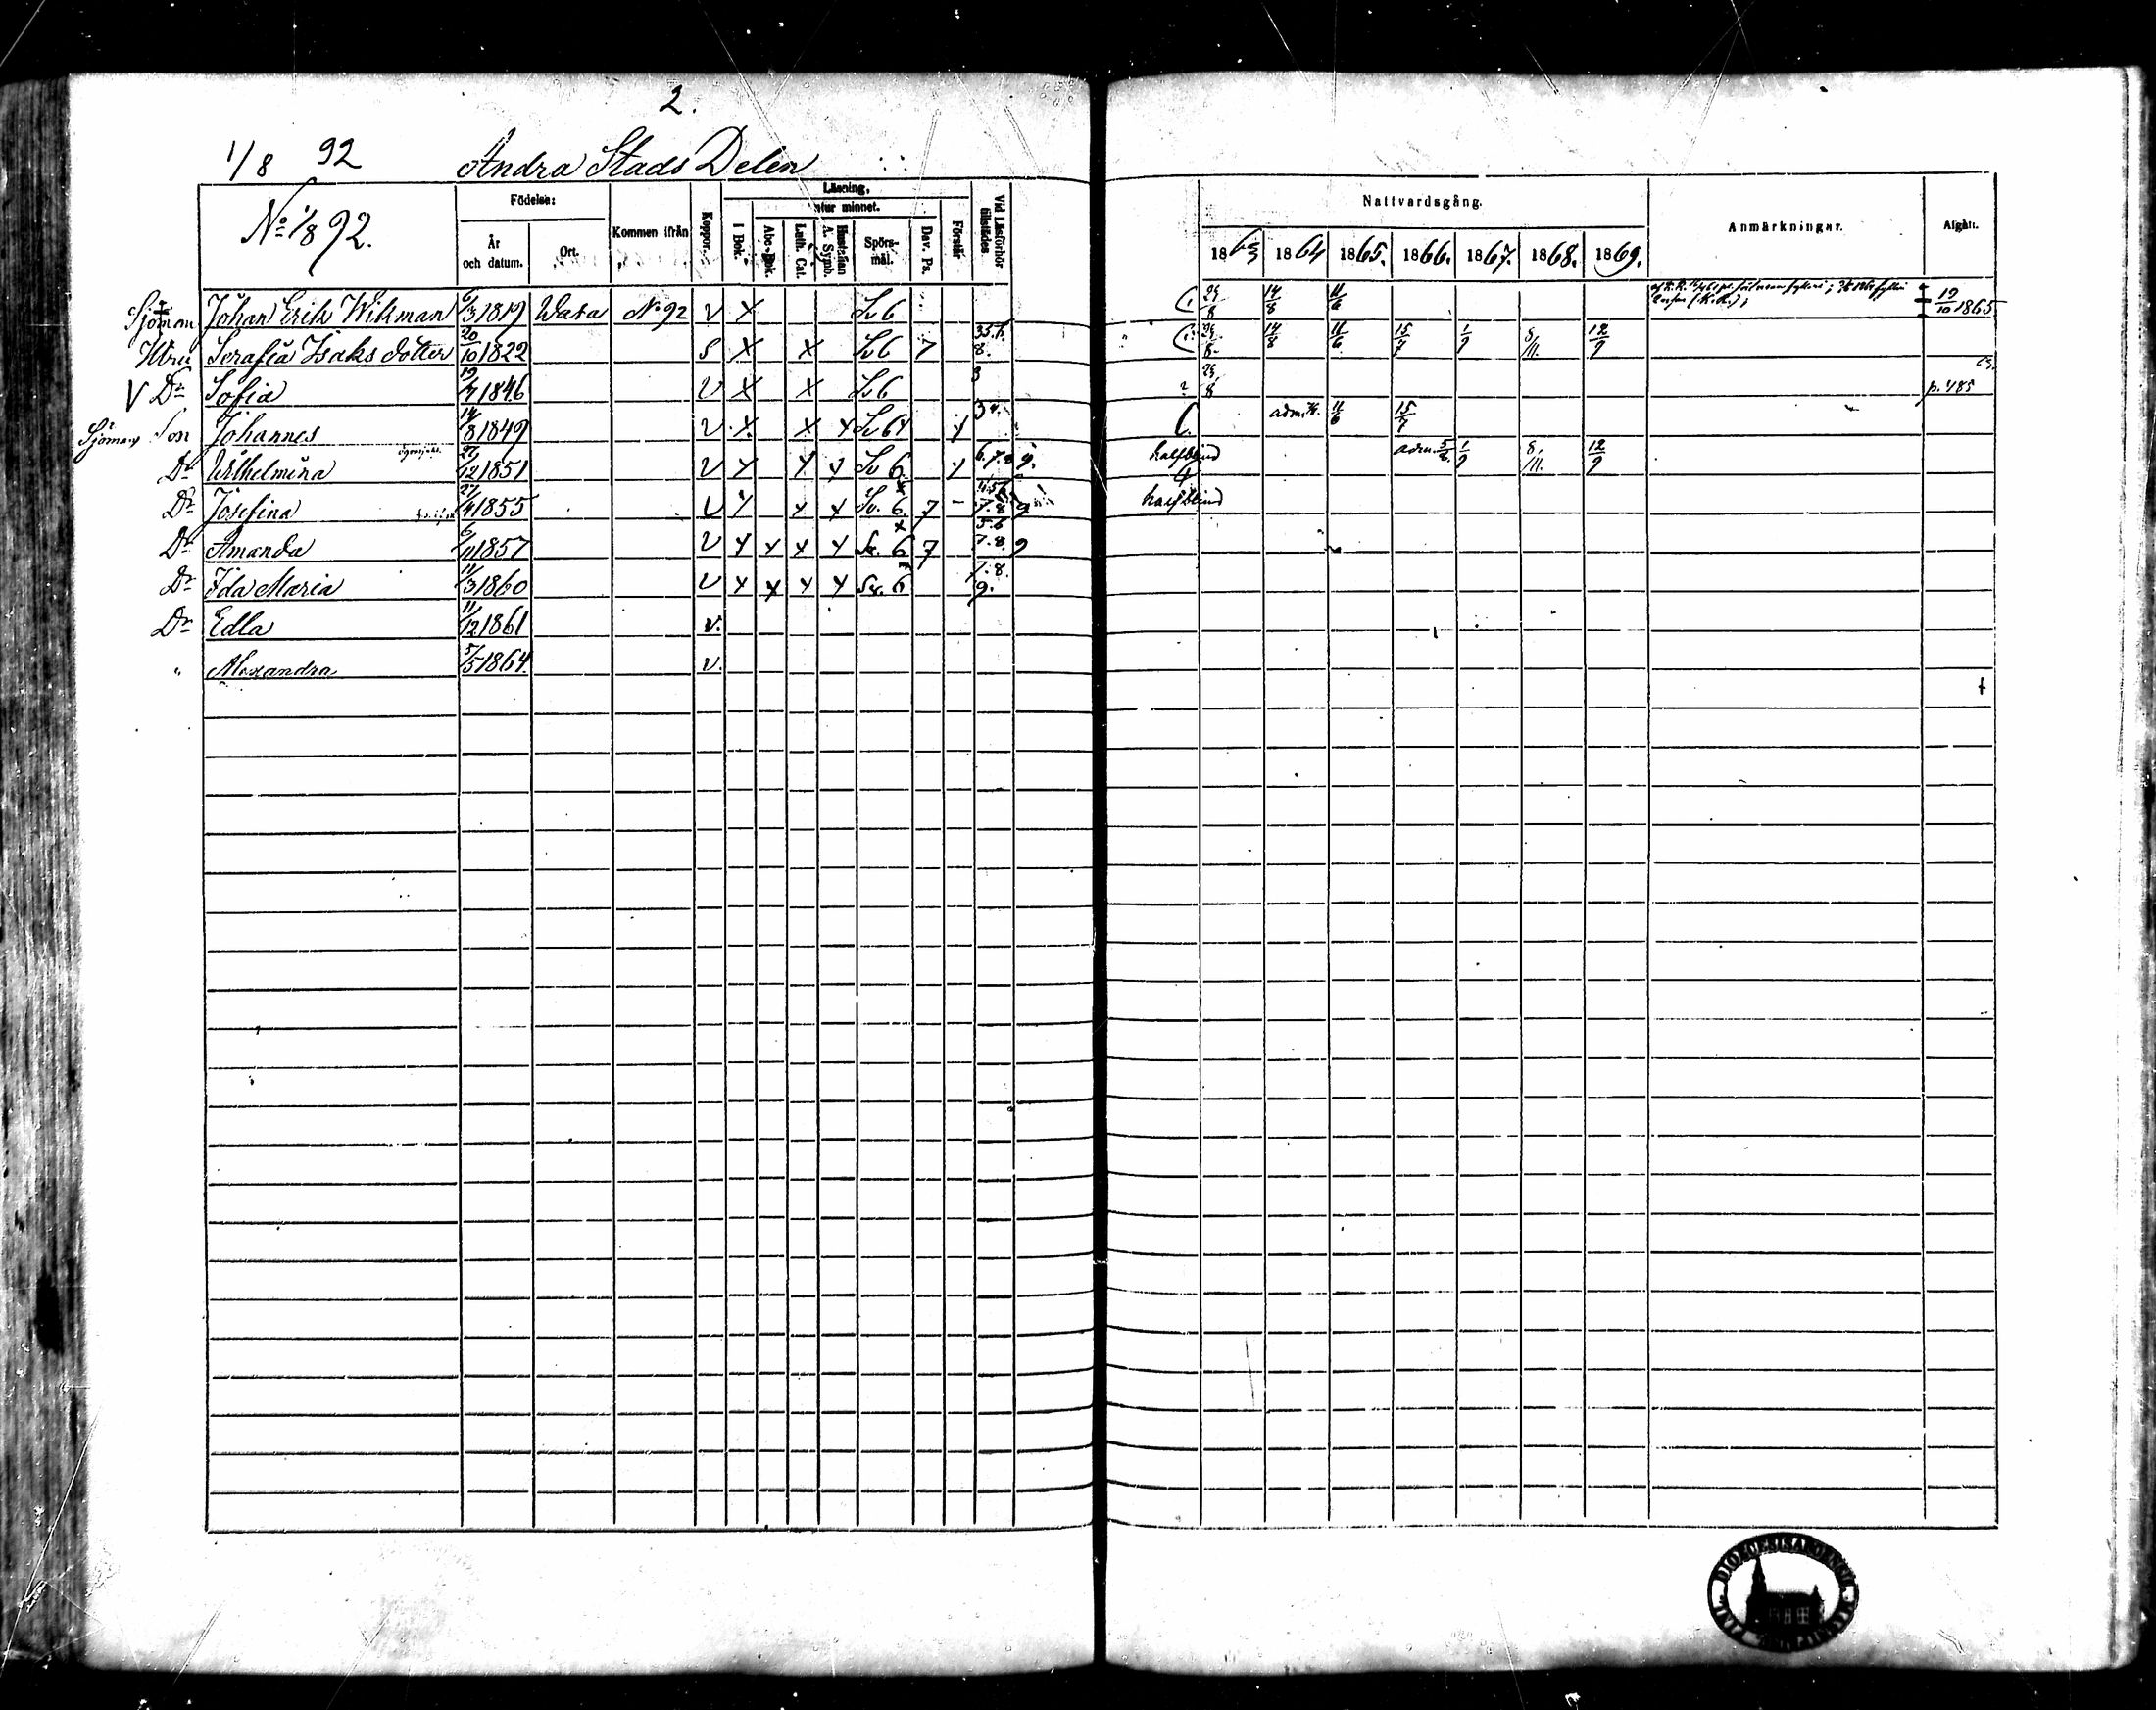 2.
1/8 92 Andra Stads Delen
No 1/8 92.
Födelse:
År och datum.
Ort.
Kommen ifrån
Koppor.
Läsning,
utur minnet.
I Bok.
Abc-Bok.
Luth. Cat.
Hustaflan A. Symb.
Spörsmål.
Dav. Ps.
Förstår
Vid Läsförhör tillstädes.
Nattvardsgång.
1863 1864 1865. 1866. 1867. 1868. 1869.
Anmärkningar.
Afgått.
Sjöman Johan Erik Wikman 6/3 1819 Wasa No 92 v x Sv 6 23/8 14/8 11/6 † 19/10 1865
Hru Serafia Isaks dotter 20/10 1822 S x x Sv 6 7 23/8 14/8 11/6 15/7 1/9 8/11. 12/9
V Dr Sofia 19/7 1846 v x x Sv 6 3 23/8 p. 485
Sjöman Son Johannes 14/8 1849 v x x x 11/6 15/7
Dr Wilhelmina 12 1851 v x x x Sv 6 x halfblind adm. 1/9 8/11. 12/9
Dr Josefina 1855 v x x x Sv. 6 7 - 7.8 9 halfblind
Dr Amanda 6/11 1857 v x x x x Sv. 6 7 5.6 7.8. 9
Dr Ida Maria 11/3 1860 v x x x x Sv. 6 7.8. 9.
Dr Edla 11/12 1861 v.
" Alexandra 5/5 1864 v.
†